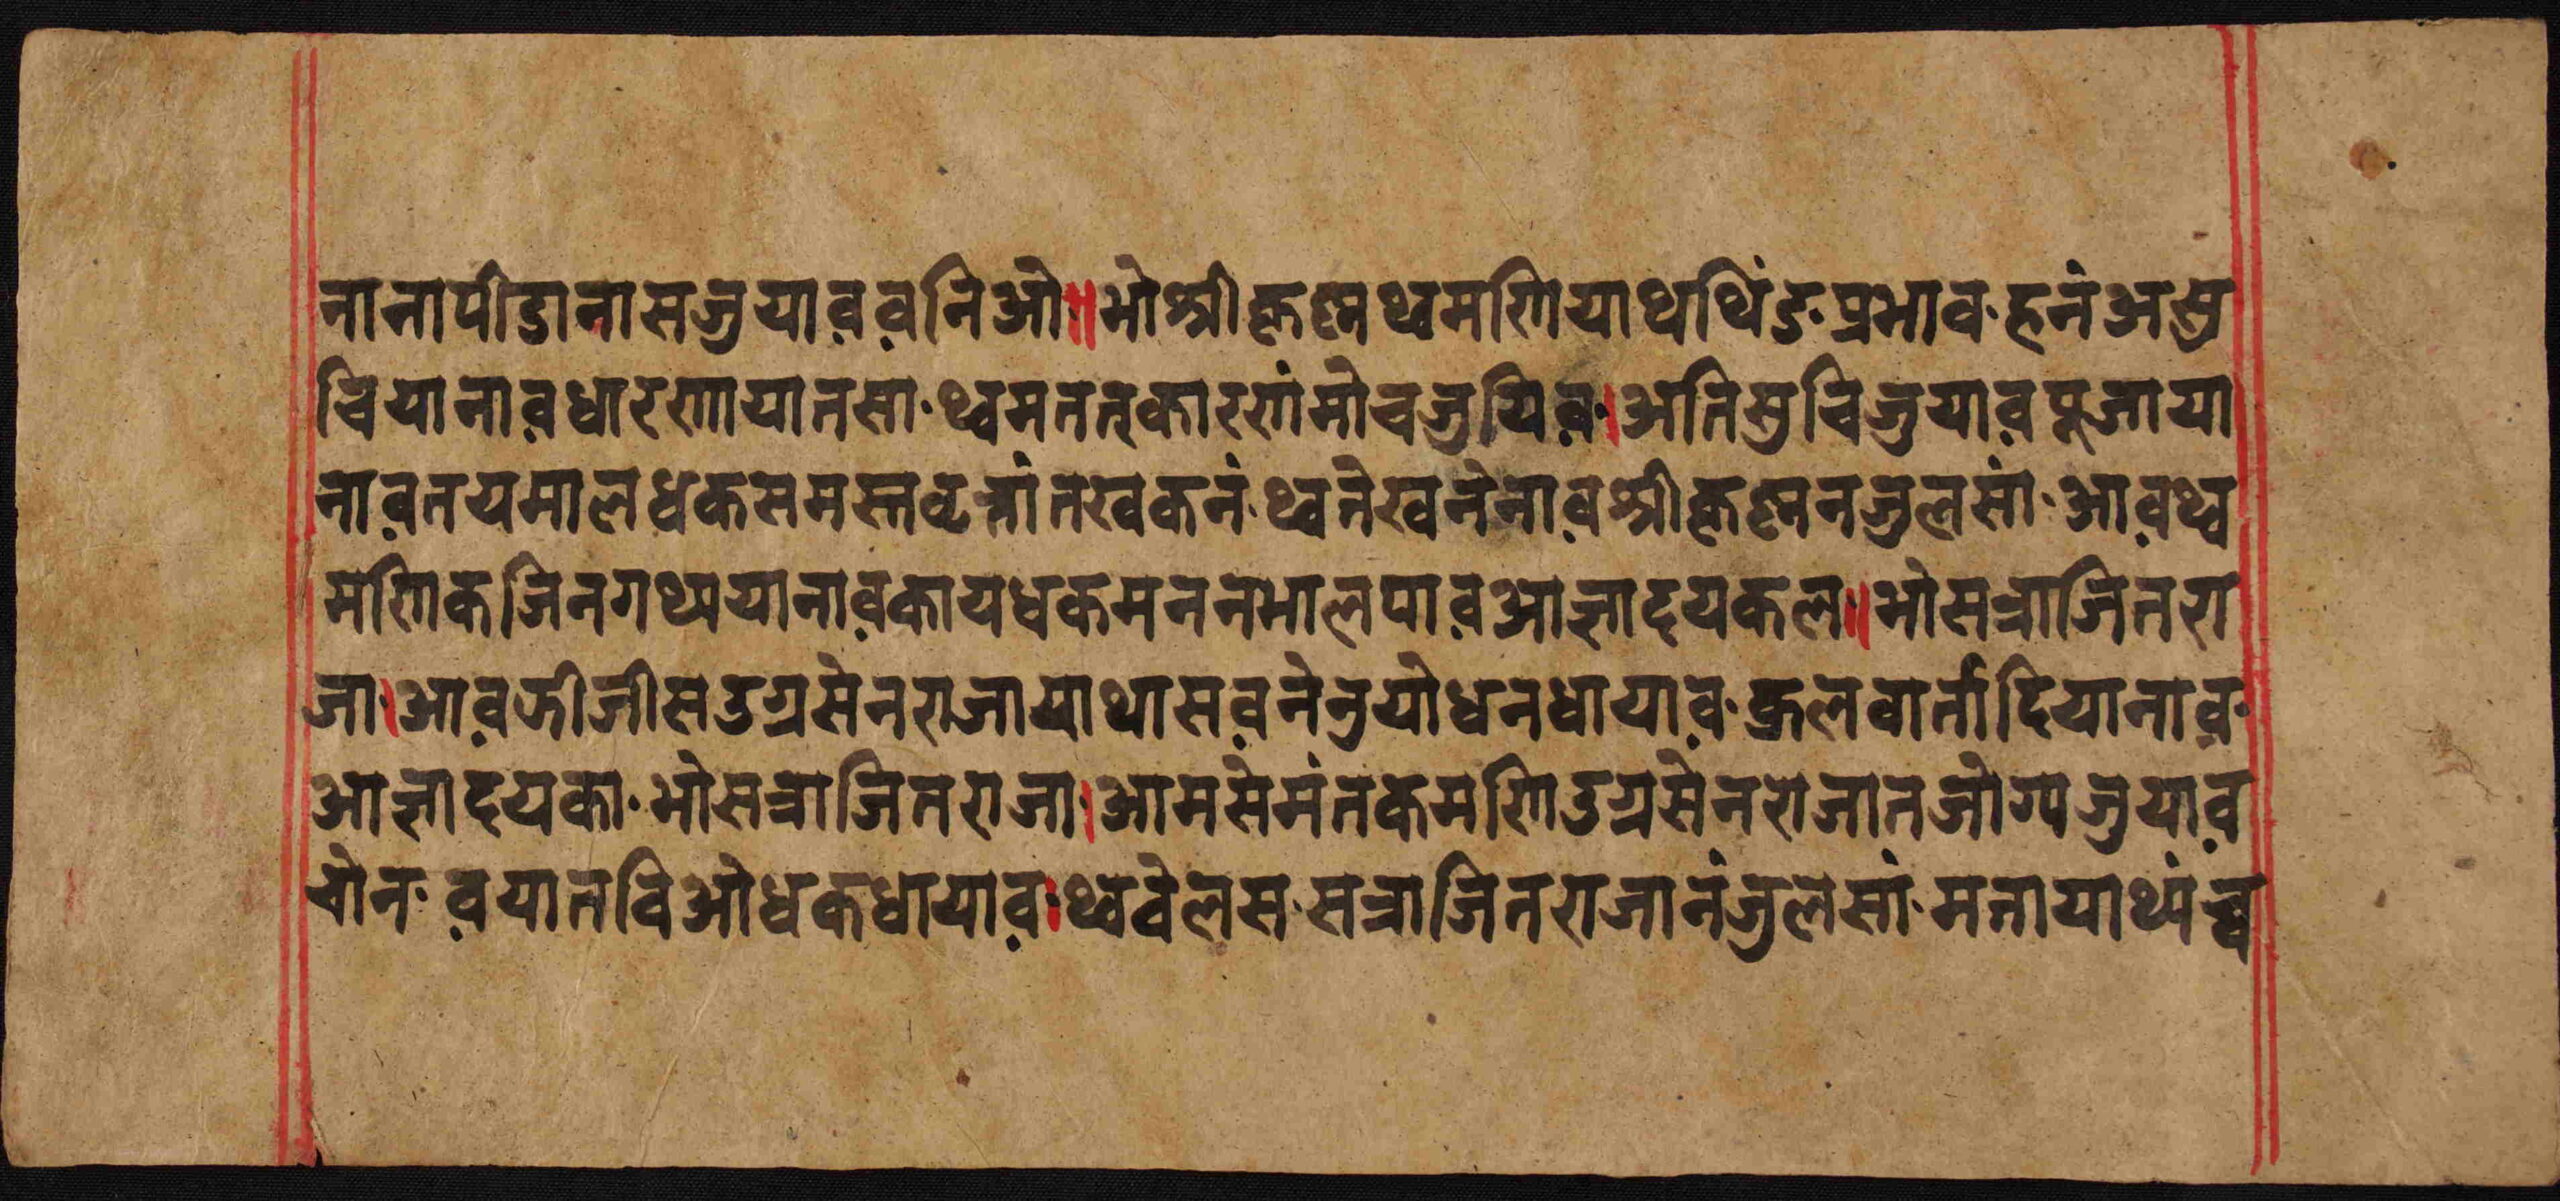 नानापीडानासजुयाव़व़निओ॥भोश्रीकृष्णथ्वमणियाथथिंङ·प्रभाव·हनंअसु
चियानाव़धारणायातसा·थ्वमनतत्कारणंमोचजुयिव़·।अतिसुचिजुयाव़पूजाया
नाव़तयमालधकसमस्तवृत्तांतखकनं·थ्वतेखनेनाव़श्रीकृष्णनजुलसां·आव़थ्व
मणिकजिनगथ्ययानाव़कायधकमननभालपाव़आज्ञादयकल·॥भोसत्राजितरा
जा·।आव़जीजीसउग्रसेनराजायाथासव़नेनुयोधनधायाव़·कुलवार्तादियानाव़·
आज्ञादयका·भोसत्राजितराजा·।आमसेमंतकमणिउग्रसेनराजातजोग्यजुयाव़
चोन·व़यातविओधकधायाव़·।थ्ववेलस·सत्राजितराजानंजुलसां·मतायाथ्यंच्व